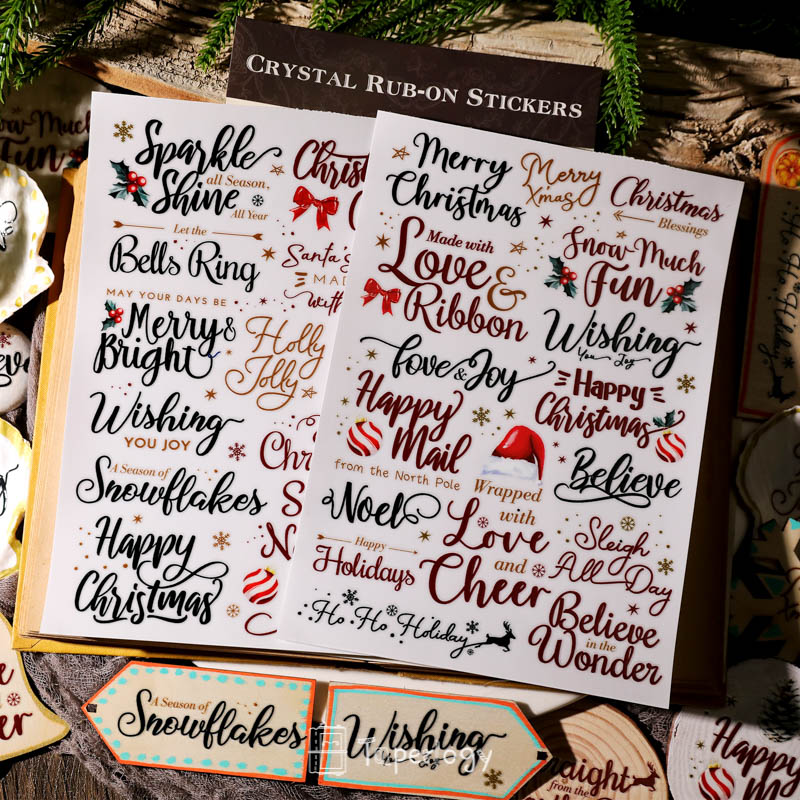 CRYSTAL RUB-ON STICKERS
Sparkle
Shine
all Season,
All Year
Let the
Bells Ring
MAY YOUR DAYS BE
Merry &
Bright
Wishing
YOU JOY
A Season of
Snowflakes
Happy
Christmas
Santa's
Holly
Jolly
Merry
Christmas
Merry
Xmas
Christmas
Blessings
Made with
Love &
Ribbon
Snow Much
Fun
Wishing
You Joy
Love & Joy
Happy
Christmas
Happy
Mail
from the North Pole
Believe
Wrapped
with
Love
and
Cheer
Noel
Sleigh
All Day
Happy
Holidays
Believe
in the
Wonder
Ho Ho Holiday
Snow Much
Fun
A Season of
Snowflakes
Wishing
You Joy
Happy
Mail
from the
Taperlogy